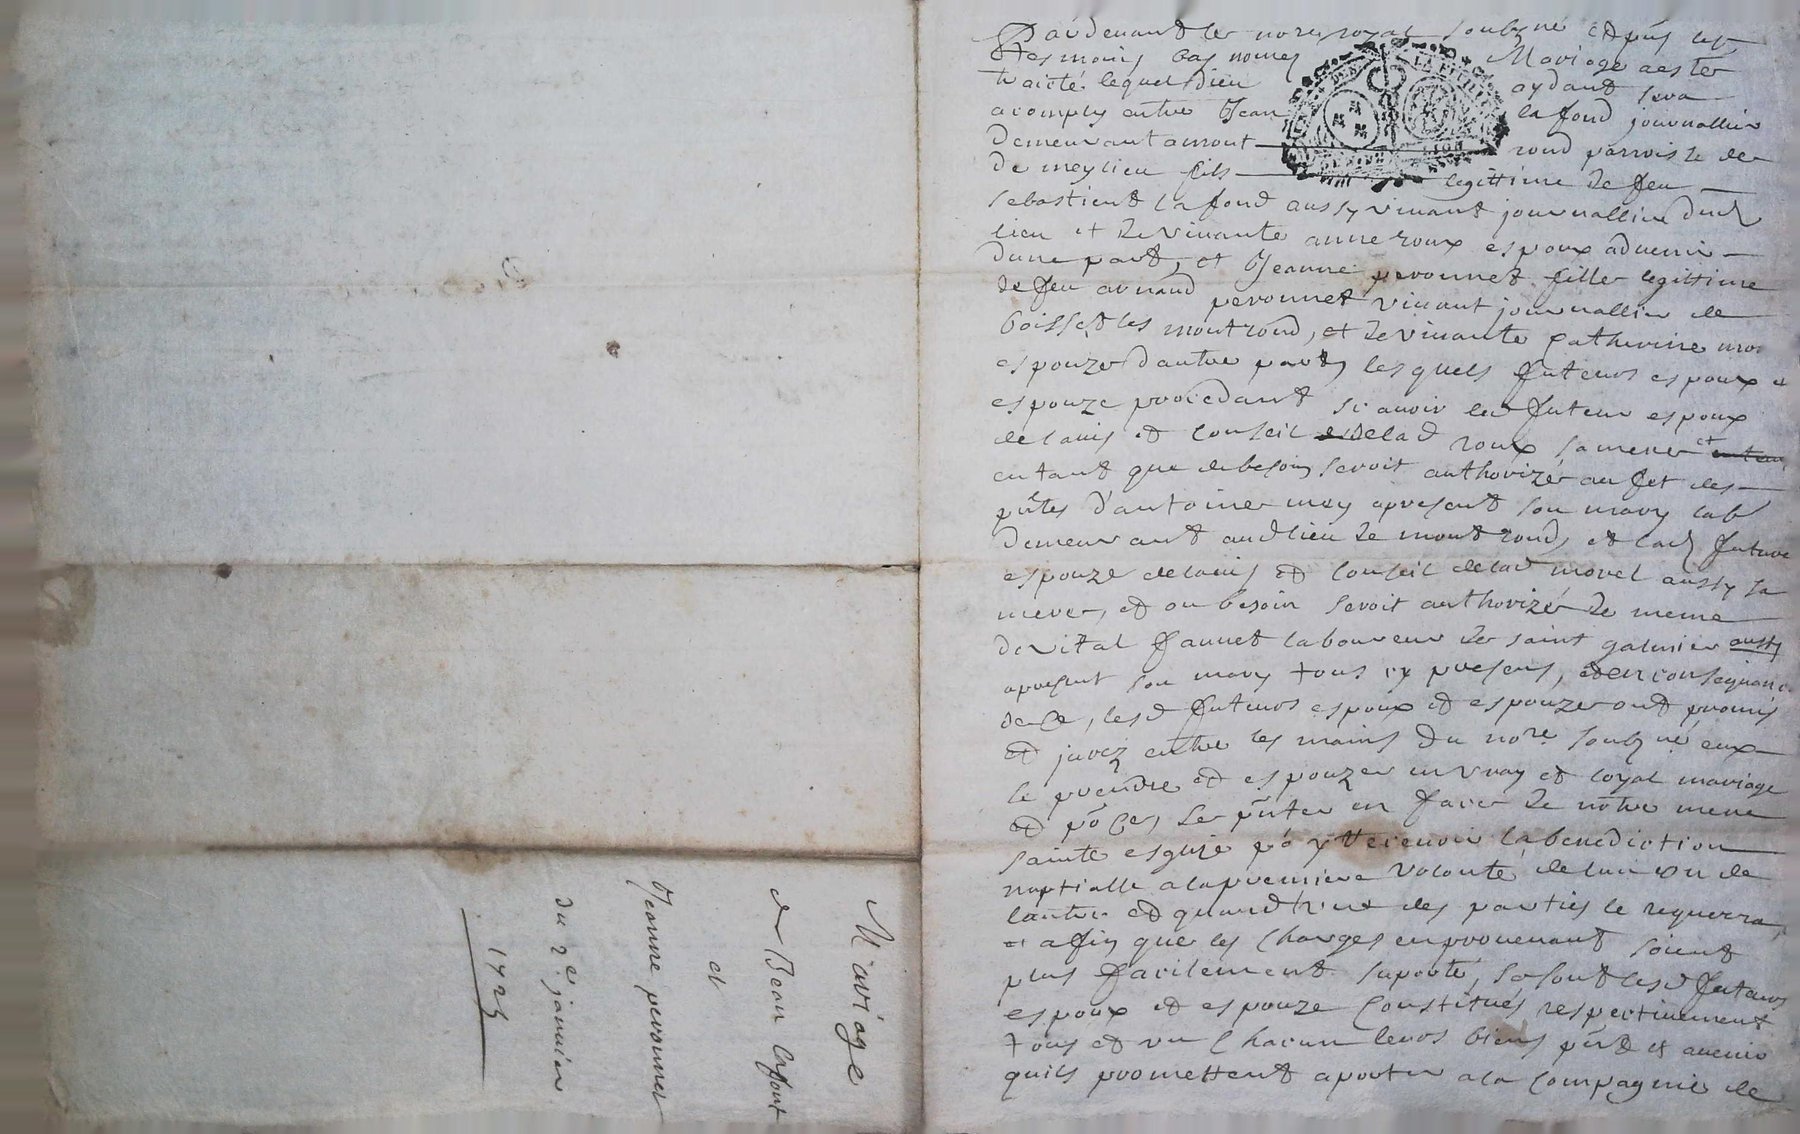 Pardevant le nore royal soubzné et pñs les
tesmoins bas només Mariage a esté
traicté lequel Dieu aydant sera
acomply entre Jean la fond journallier
demeurant a mont rond parroisse de
de meylieu fils legittime de feu
sebastient la fond aussy vivant journallier dud
lieu et de vivante anne roux espoux advenir
dune part, et Jeanne peronnet fille legittime
de feu arnaud peronnet vivant journallier de
boisset les montrond, et de vivante Catherine mor
espouze dautre part, lesquels futeurs espoux et
espouze procedant scavoir led futeur espoux
de lavis et conseil de lad roux sa mere et
en tant que de besoin seroit authorizée au fet des
pñtes d'antoine mey apresent son mary lab
demeurant audlieu de montrond, et lad future
espouze de lavis et conseil de lad morel aussy sa
mere, et ou besoin seroit authorizée de meme
de vital faunet laboureur de saint galmier aussy
apresent son mary tous cy presens, et en consequance
de ce, lesd futeurs espoux et espouze ont promis
et jurez entre les mains du nore soubzné eux
le prendre et espouzer en vray et loyal mariage
et po ce, se pñter en face de notre mere
sainte esglize po y recevoir la benediction
nuptialle a la premiere volonté de lun ou de
lautre et quand lune des parties le requerra,
et afin que les charges en provenant soient
plus facilement suporté, se sont lesd futeurs
espoux et espouze constitués respectivement
tous et un chacun leurs biens pñt et avenir
quils promettent aporter a la compagnie de
Mariage
de Jean lafont
et
Jeanne peronnet
du 2e janvier
1725